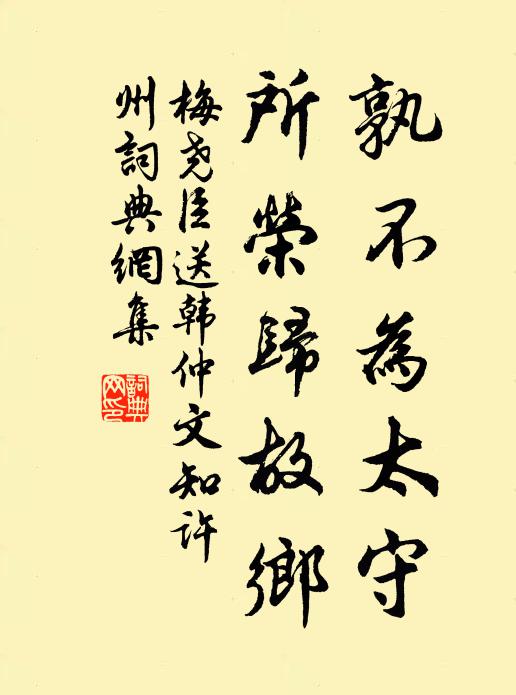 孰不為太守
所榮歸故鄉
梅尧臣送韩仲文知许
州詞典網集
詞典
网印